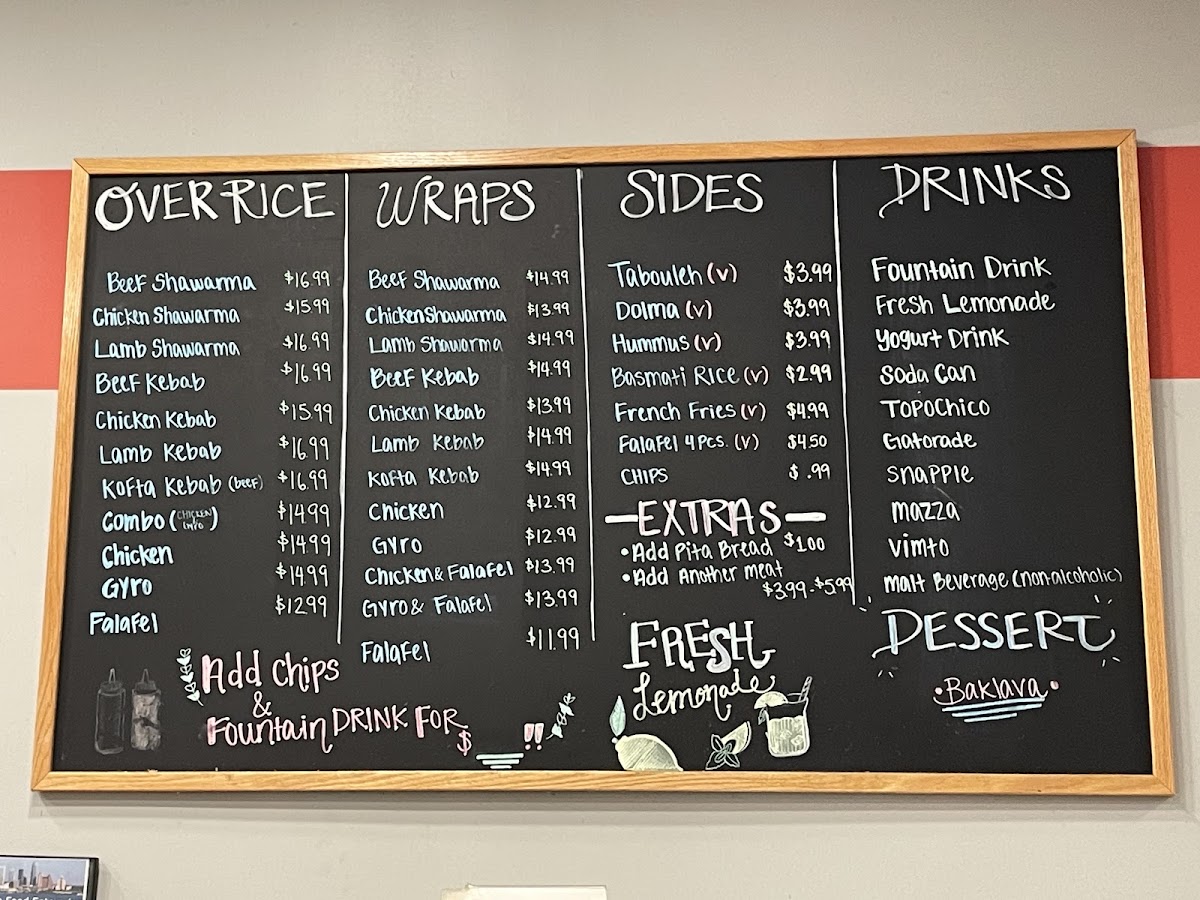 OVER RICE
Beef Shawarma $16.99
Chicken Shawarma $15.99
Lamb Shawarma $16.99
Beef Kebab $16.99
Chicken Kebab $15.99
Lamb Kebab $16.99
Kofta Kebab (beef) $16.99
Combo (CHICKEN &) $14.99
Chicken $14.99
Gyro $14.99
Falafel $12.99
WRAPS
Beef Shawarma $14.99
Chicken Shawarma $13.99
Lamb Shawarma $14.99
Beef Kebab $14.99
Chicken Kebab $13.99
Lamb Kebab $14.99
Kofta Kebab $14.99
Chicken $12.99
Gyro $12.99
Chicken & Falafel $13.99
Gyro & Falafel $13.99
Falafel $11.99
Add Chips
&
Fountain DRINK FOR
$ !!
SIDES
Tabouleh (v) $3.99
Dolma (v) $3.99
Hummus (v) $3.99
Basmati Rice (v) $2.99
French Fries (v) $4.99
Falafel 4 pcs. (v) $4.50
CHIPS $.99
EXTRAS
• Add Pita Bread $1.00
• Add Another meat
$3.99-$5.99
FRESH
Lemonade
DRINKS
Fountain Drink
Fresh Lemonade
Yogurt Drink
Soda Can
TOPOCHICO
Gatorade
Snapple
Mazza
Vimto
Malt Beverage (non-alcoholic)
DESSERT
• Baklava •